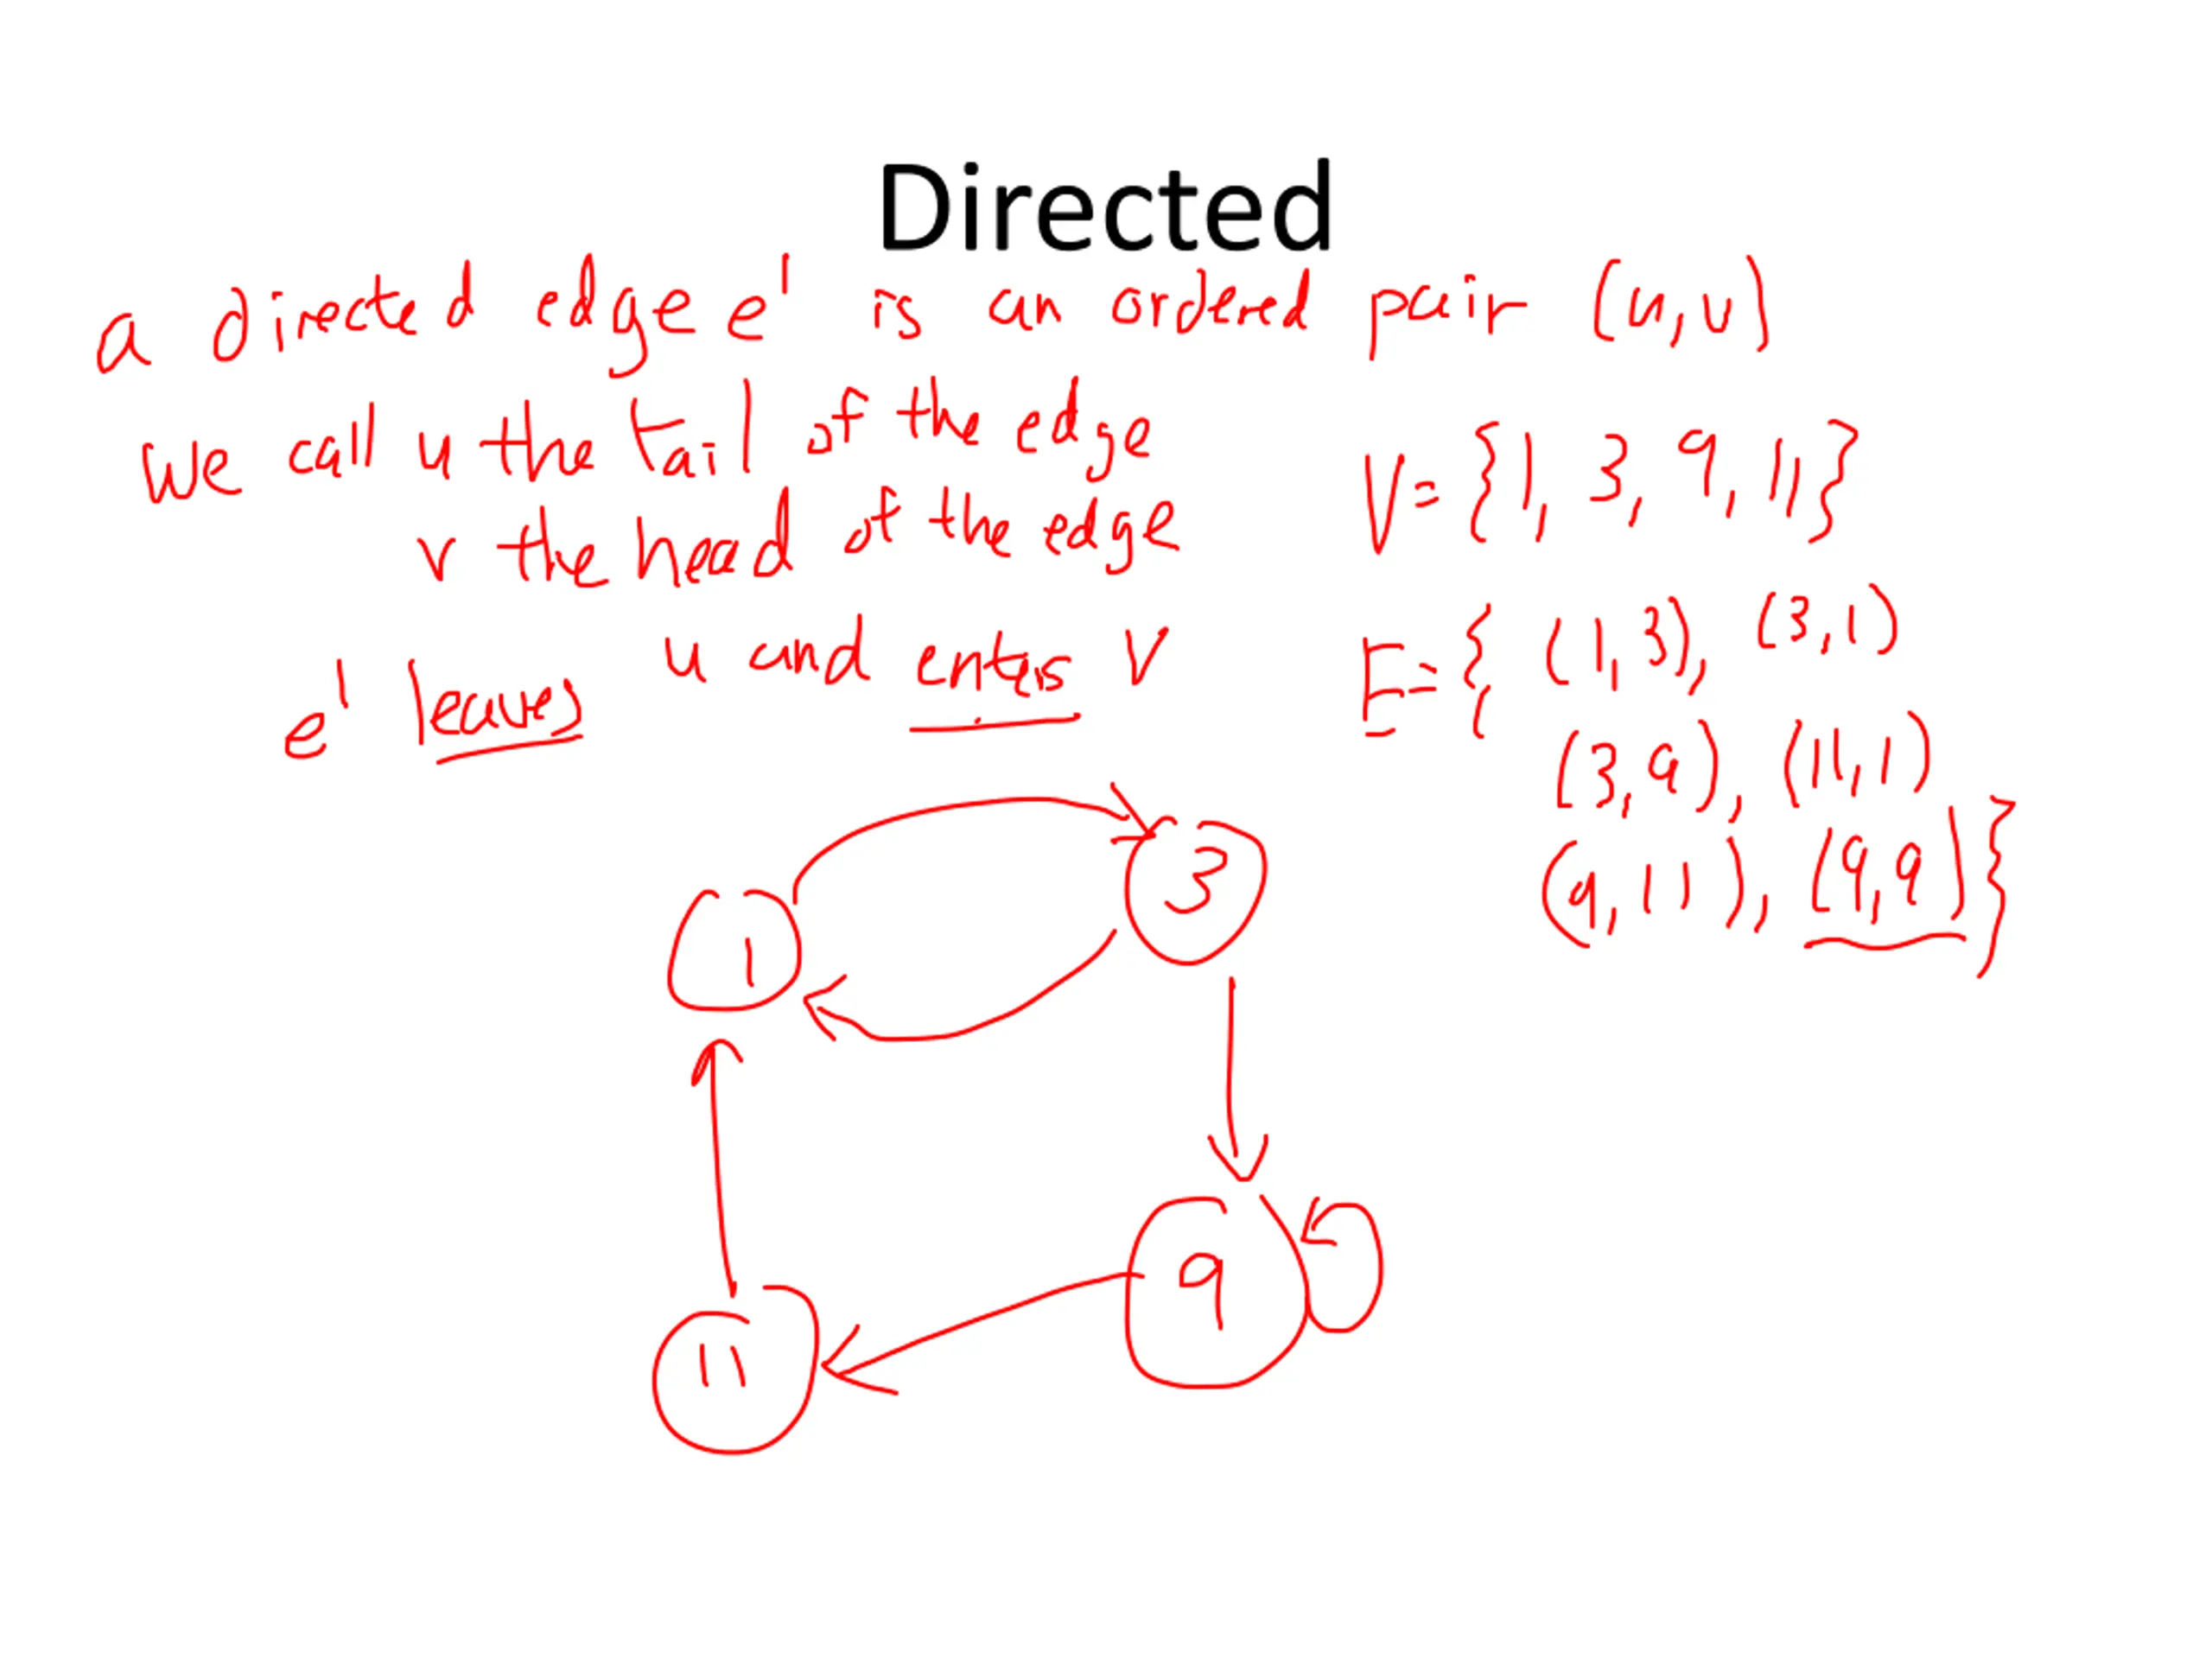 Directed
a directed edge e' is an ordered pair (u,v)
we call u the tail of the edge
v the head of the edge
e' leaves u and enters v
V={1, 3, 9, 11}
E={ (1,3), (3,1)
(3,9), (11,1)
(9,11), (9,9) }
1
3
11
9